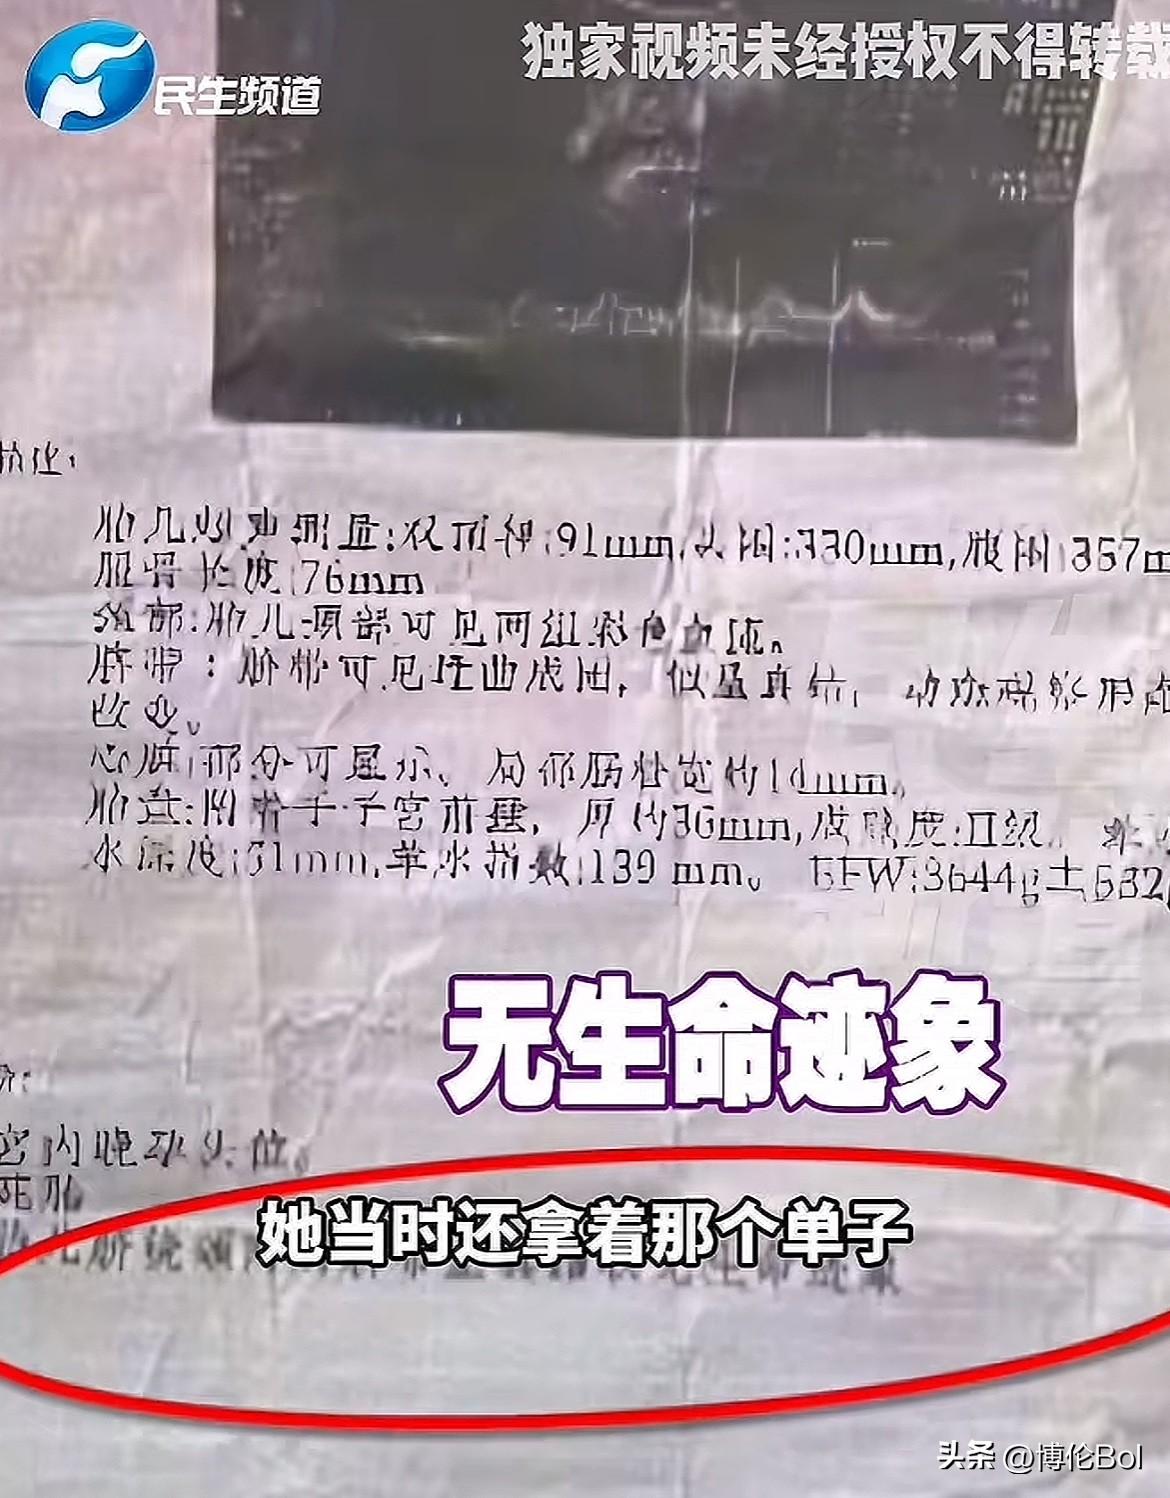 民生频道
独家视频未经授权不得转载
胎儿超声测量:双顶径:91mm,头围:330mm,腹围:357m
股骨长度:76mm
颈部:胎儿颈部可见两组彩色血流。
脐带:脐带可见迂曲成团,似呈真结,动态观察形态
改变。
心脏:部分可显示、局部肠壮宽约14mm。
胎盘:附着于子宫前壁,厚约36mm,成熟度:II级。
水深度:51mm,羊水指数:139 mm。 EFW:3644g±532g
无生命迹象
宫内晚孕头位。
死胎
她当时还拿着那个单子
头条 @博伦Bol